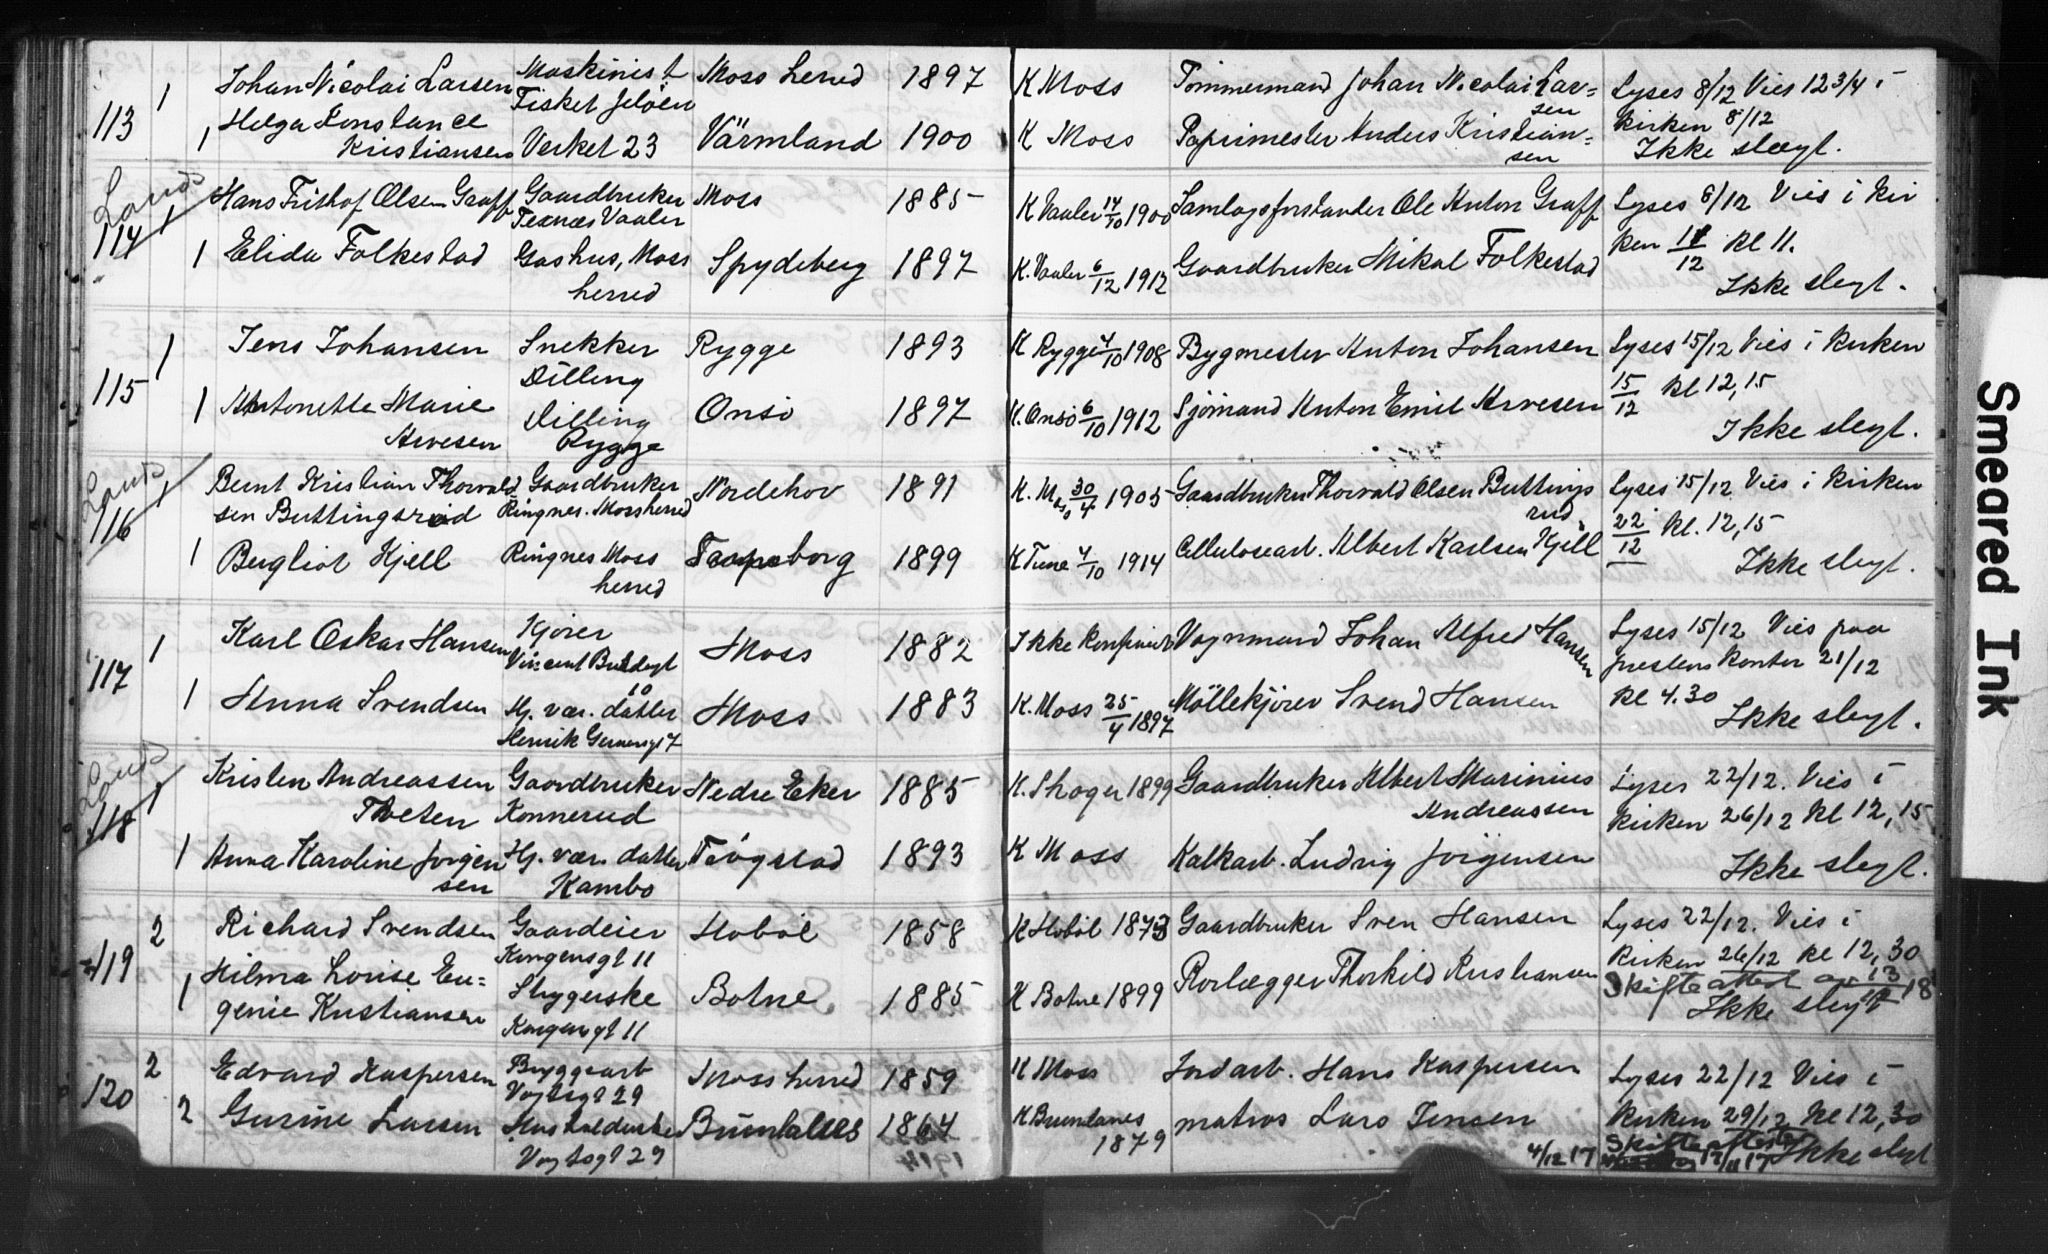 113 1 Johan Nicolai Larsen Maskinist Moss herred 1897 K Moss Tømmermand Johan Nicolai Lar= Lyses 8/12 Vies 12 3/4 i
Fisket Jeløen sen kirken 8/12
1 Helga Konstance Verket 23 Värmland 1900 K Moss Papirmester Anders Kristian= Ikke slegt.
Kristiansen sen
Lands
114 1 Hans Frithof Olsen Graff Gaardbruker Moss 1885 K Vaaler 14/10 1900 Samlagsforstander Ole Anton Graff Lyses 8/12 Vies i kir
Texnæs Vaaler ken 11/12 kl 11.
1 Elida Folkestad Gashus, Moss Spydeberg 1897 K. Vaaler 6/12 1912 Gaardbruker Mikal Folkestad
herred Ikke slegt.
115 1 Jens Johansen Snekker Rygge 1893 K Rygge 4/10 1908 Bygmester Anton Johansen Lyses 15/12 Vies i kirken
Dilling 15/12 kl 12,15
1 Antonette Marie Dilling Onsö 1897 K. Onsö 6/10 1912 Sjömand Anton Emil Arvesen
Arvesen Rygge Ikke slegt.
Lands
116 1 Bernt Kristian Thorvald Gaardbruker Norderhov 1891 K. Moss 30/4 1905 Gaardbruker Thorvald Olsen Buttings Lyses 15/12 Vies i kirken
sen Buttingsrud Ringnes. Moss herred rud. 22/12 kl. 12,15
1 Bergliot Kjell Ringnes Moss 1899 K Tune 4/10 1914 Celluloseart. Albert Karlsen Kjell Ikke slegt.
herred
117 1 Karl Oskar Hansen Kjører Moss 1882 Ikke konfirmert Vognmand Johan Alfred Hansen Lyses 15/12 Vies paa
Vincent Buddegt prestens kontor 21/12
10 kl 4.30
1 Anna Svendsen Hj. vær. datter Moss 1883 K. Moss 25/4 1897 Möllekjörer Svend Hansen Ikke slegt.
Henrik Gernersgt 7
Lands
118 1 Kristen Andreassen Gaardbruker Nedre Eker 1885 K. Skoger 1899 Gaardbruker Albert Marinius Lyses 22/12. Vies i
Tveten Konnerud Andreassen kirken 26/12 kl 12,15
1 Anna Karoline Jørgen Hj. vær. datter Trögstad 1893 K Moss Kalkarb. Ludvig Jörgensen
sen Kambo Ikke slegt.
119 2 Richard Svendsen Gaardeier Hobøl 1858 K Hobøl 1873 Gaardbruker Sven Hansen Lyses 22/12. Vies i
Kongensgt 11 kirken 26/12 kl 12,30
1 Hilma Lovise Eu= Strygerske Botne 1885 K Botne 1899 Rorlægger Thorkild Kristiansen Skifteattest av 13 18
genie Kristiansen Kongensgt 11 Ikke slegt
120 2 Edvard Kaspersen Bryggearb Moss herred 1859 K Moss Jordarb. Hans Kaspersen Lyses 22/12 Vies i
Vogtsgt 29 kirken 29/12 kl 12,30
2 Gurine Larsen Husholderske Brunlanes 1864 K Brunlanes matros Lars Jensen Skifteattester
Vogtsgt 29 1879 4/12 17 17/11 17 Ikke slegt
Smeared Ink